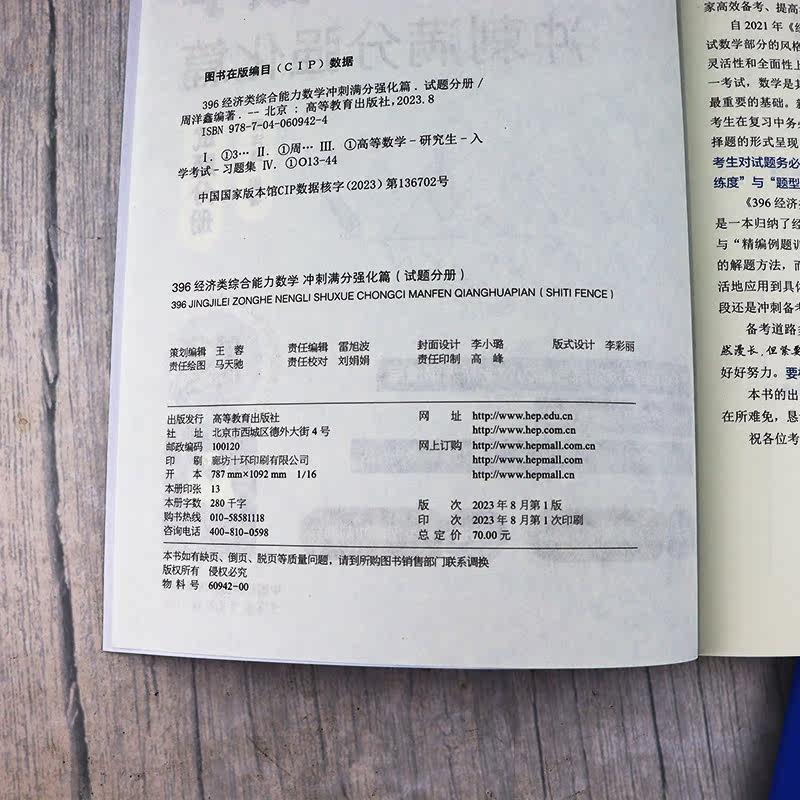 图书在版编目（CIP）数据
396 经济类综合能力数学冲刺满分强化篇．试题分册 /
周洋鑫编著．-- 北京：高等教育出版社，2023.8
ISBN 978-7-04-060942-4
Ⅰ．①3… Ⅱ．①周… Ⅲ．①高等数学－研究生－入
学考试－习题集 Ⅳ．①O13-44
中国国家版本馆CIP数据核字（2023）第136702号
396 经济类综合能力数学 冲刺满分强化篇（试题分册）
396 JINGJILEI ZONGHE NENGLI SHUXUE CHONGCI MANFEN QIANGHUAPIAN（SHITI FENCE）
策划编辑 王 蓉 责任编辑 雷旭波 封面设计 李小璐 版式设计 李彩丽
责任绘图 马天驰 责任校对 刘娟娟 责任印制 高 峰
出版发行 高等教育出版社
社 址 北京市西城区德外大街 4 号
邮政编码 100120
印 刷 廊坊十环印刷有限公司
开 本 787 mm×1092 mm 1/16
本册印张 13
本册字数 280 千字
购书热线 010-58581118
咨询电话 400-810-0598
网 址 http://www.hep.edu.cn
http://www.hep.com.cn
网上订购 http://www.hepmall.com.cn
http://www.hepmall.com
http://www.hepmall.cn
版 次 2023 年 8 月第 1 版
印 次 2023 年 8 月第 1 次印刷
总 定 价 70.00 元
本书如有缺页、倒页、脱页等质量问题，请到所购图书销售部门联系调换
版权所有 侵权必究
物 料 号 60942-00
家高效备考、提高
自 2021 年《经
试数学部分的风格
灵活性和全面性上
一考试，数学是其
最重要的基础。
考生在复习中务必
择题的形式呈现
考生对试题务必
练度”与“题型
《396 经济类
是一本归纳了经
与“精编例题训
的解题方法，而
活地应用到具体
段还是冲刺备考
备考道路
然漫长，但紧要
好好努力。要
本书的出
在所难免，恳
祝各位考